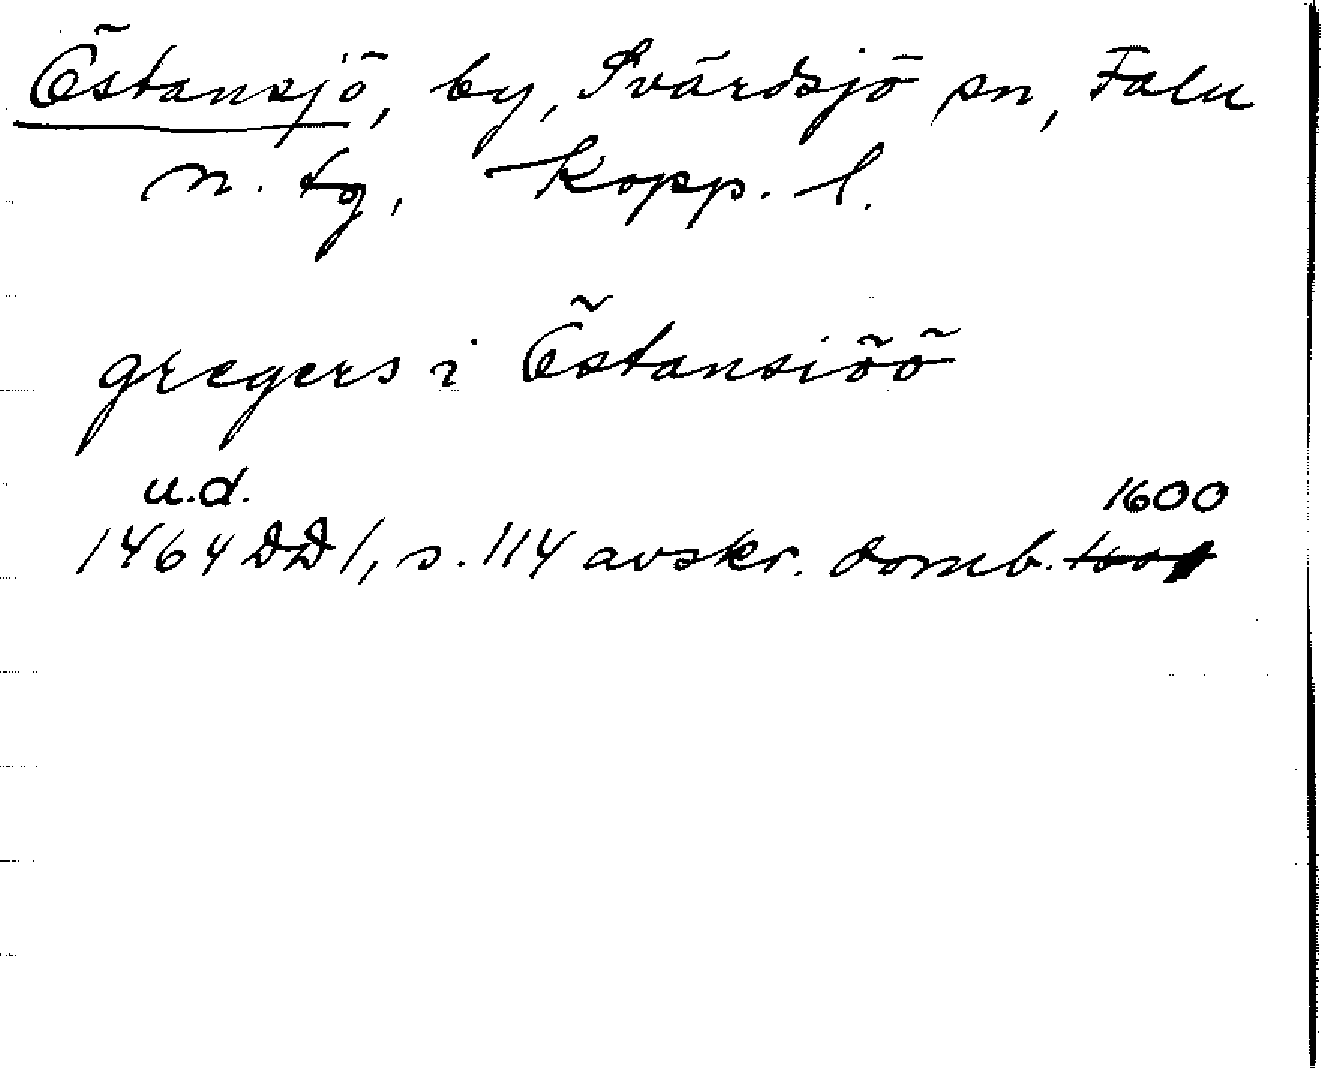 Östansjö, by, Svärdsjö sn, Falu
n. tg, Kopp. l.
gregers i Östansiöö
u.d. 1600
1464 DD 1, s. 114 avskr. domb.